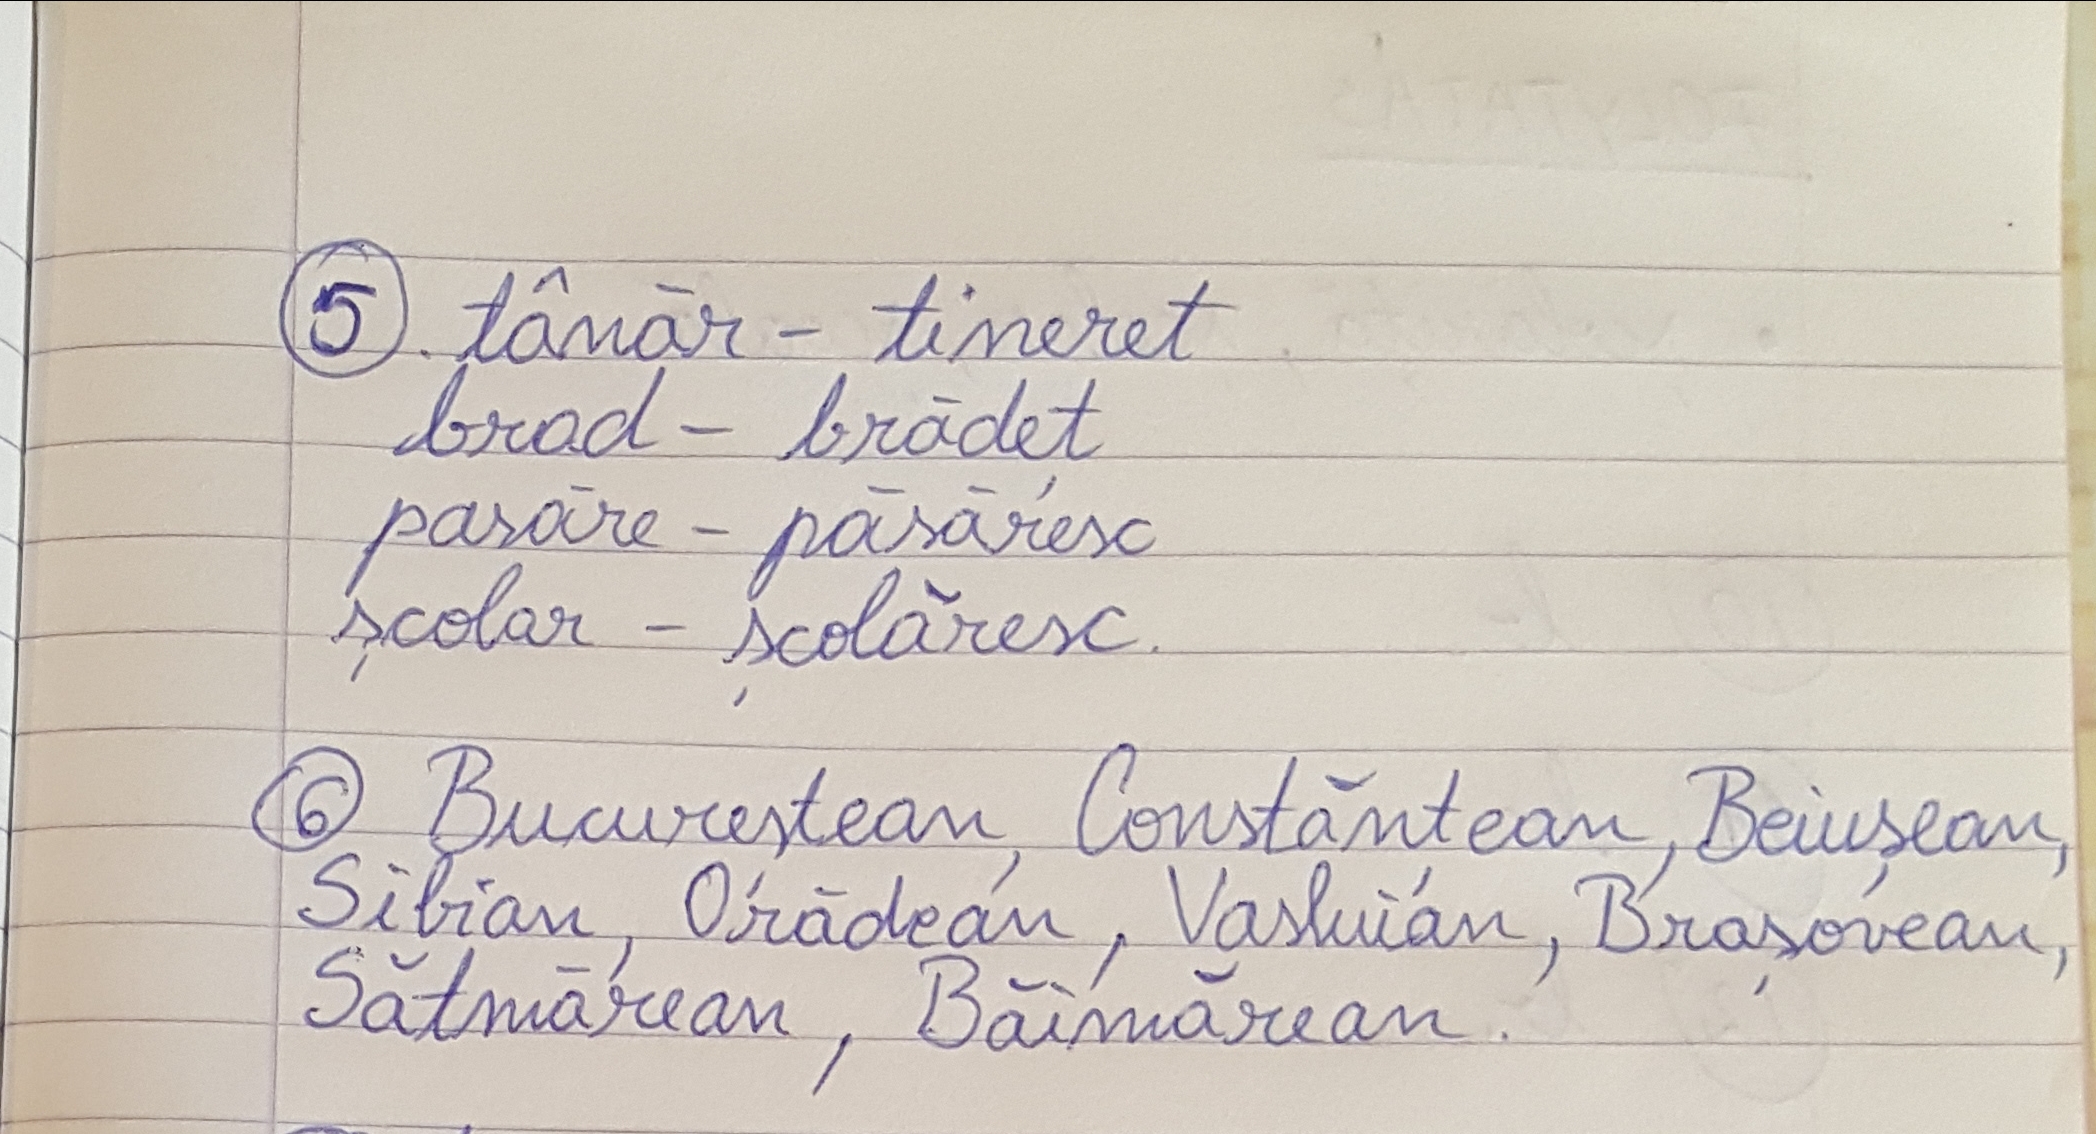 5. tânăr - tineret
brad - brădet
pasăre - păsăresc
școlar - școlăresc.
6 Bucureștean, Constănțean, Beiușean,
Sibian, Orădean, Vasluian, Brașovean,
Sătmărean, Băimărean.